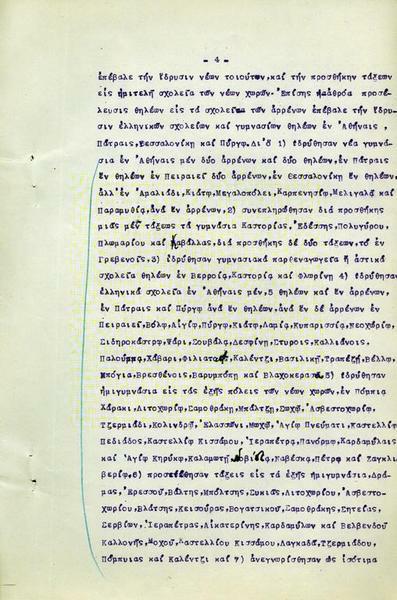 - 4 -
ἐπέβαλε τήν ἵδρυσιν νέων τοιούτων,καί τήν προσθήκην τάξεων
εἰς ἡμιτελῆ σχολεῖα τῶν νέων χωρῶν. Ἐπίσης ἡ ἀθρόα προσέ-
λευσις θηλέων εἰς τά σχολεῖα τῶν ἀρρένων ἐπέβαλε τήν ἵδρυ-
σιν ἑλληνικῶν σχολείων καί γυμνασίων θηλέων ἐν Ἀθήναις,
Πάτραις,Θεσσαλονίκῃ καί Πύργῳ. Δι'ὅ 1) ἱδρύθησαν νέα γυμνά-
σια ἐν Ἀθήναις μέν δύο ἀρρένων καί δύο θηλέων,ἐν Πάτραις
ἕν θηλέων ἐν Πειραιεῖ δύο ἀρρένων,ἐν Θεσσαλονίκῃ ἕν θηλέων,
ἀλλ'ἐν Ἀμαλιάδι,Κιάτῳ,Μεγαλοπόλει,Καρπενησίῳ,Μελιγαλᾷ καί
Παραμυθίᾳ,ἀνά ἕν ἀρρένων,2) συνεπληρώθησαν διά προσθήκης
μιᾶς μέν τάξεως τά γυμνάσια Καστορίας,Ἐδέσσης,Πολυγύρου,
Πλωμαρίου καί Καβάλλας,διά προσθήκης δέ δύο τάξεων,τό ἐν
Γρεβενοῖς,3) ἱδρύθησαν γυμνασιακά παρθεναγωγεῖα ἤ ἀστικά
σχολεῖα θηλέων ἐν Βερροίᾳ,Καστορίᾳ καί Φλωρίνῃ 4) ἱδρύθησαν
ἑλληνικά σχολεῖα ἐν Ἀθήναις μέν,5 θηλέων καί ἕν ἀρρένων,
ἐν Πάτραις καί Πύργῳ ἀνά ἕν θηλέων,ἀνά ἕν δέ ἀρρένων ἐν
Πειραιεῖ,Βόλῳ,Αἰγίῳ,Πύργῳ,Κιάτῳ,Λαμίᾳ,Κυπαρισσίᾳ,Νεοχωρίῳ,
Σιδηροκάστρῳ,Ψάρι,Σουβάλᾳ,Δεσφίνῃ,Στυροις,Καλλιάνοις,
Χάβαρι,Καλέντζι,Βασιλικῇ,Τραπέζῃ,Βέλλῳ,
Μπόγια,Βρεσθένοις,Βαρυμπόπῃ καί Βλαχοκερασᾷ 5) ἱδρύθησαν
ἡμιγυμνάσια εἰς τάς ἑξῆς πόλεις τῶν νέων χωρῶν,ἐν Πόμπια
Χάρακι,Λιτοχωρίῳ,Σαμοθράκῃ,Μπάλτζῃ,Σωχῷ,Ἀσβεστοχωρίῳ,
Τζερμιάδι,Κολινδρῷ,Ἐλασσῶνι,Μοχῷ,Ἁγίῳ Πνεύματι,Καστελλίῳ
Πεδιάδος,Καστελλίῳ Κισσάμου,Ἱεραπέτρᾳ,Πανόρμῳ,Καρδαμύλαις
καί Ἁγίῳ Κηρύκῳ,Καλαμωτῇ,Ναβέσκᾳ,Πέτρᾳ καί Ζαγκλι-
βερίῳ,6) προσετέθησαν τάξεις εἰς τά ἑξῆς ἡμιγυμνάσια,Δρά-
μας,Ἐρεσσοῦ,Βάλτης,Μπόλτσης,Συκιᾶς,Λιτοχωρίου,Ἀσβεστο-
χωρίου,Βλάτσης,Κλεισούρας,Βογατσικοῦ,Σαμοθράκης,Σητείας,
Σερβίων,Ἱεραπέτρας,Αἰκατερίνης,Καρδαμύλων καί Βελβενδοῦ
Καλλονῆς,Μοχοῦ,Καστελλίου Κισσάμου,Λαγκαδᾶ,Τζερμιάδου,
Πόμπυιας καί Καλέντζι καί 7) ἀνεγνωρίσθησαν ὡς ἰσότιμα